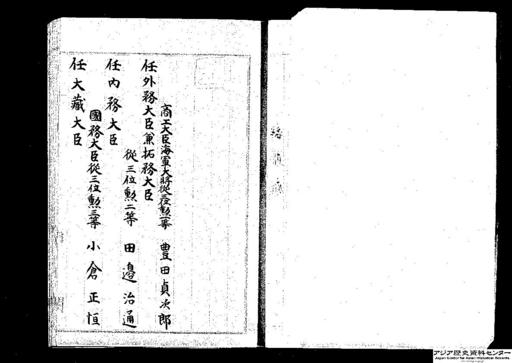 商工大臣海軍大將從三位勲一等　豊田貞次郎
任外務大臣兼拓務大臣
從三位勲二等　田邉治通
任內務大臣
國務大臣從三位勲三等　小倉正恒
任大藏大臣
アジア歴史資料センター
Japan Center for Asian Historical Records